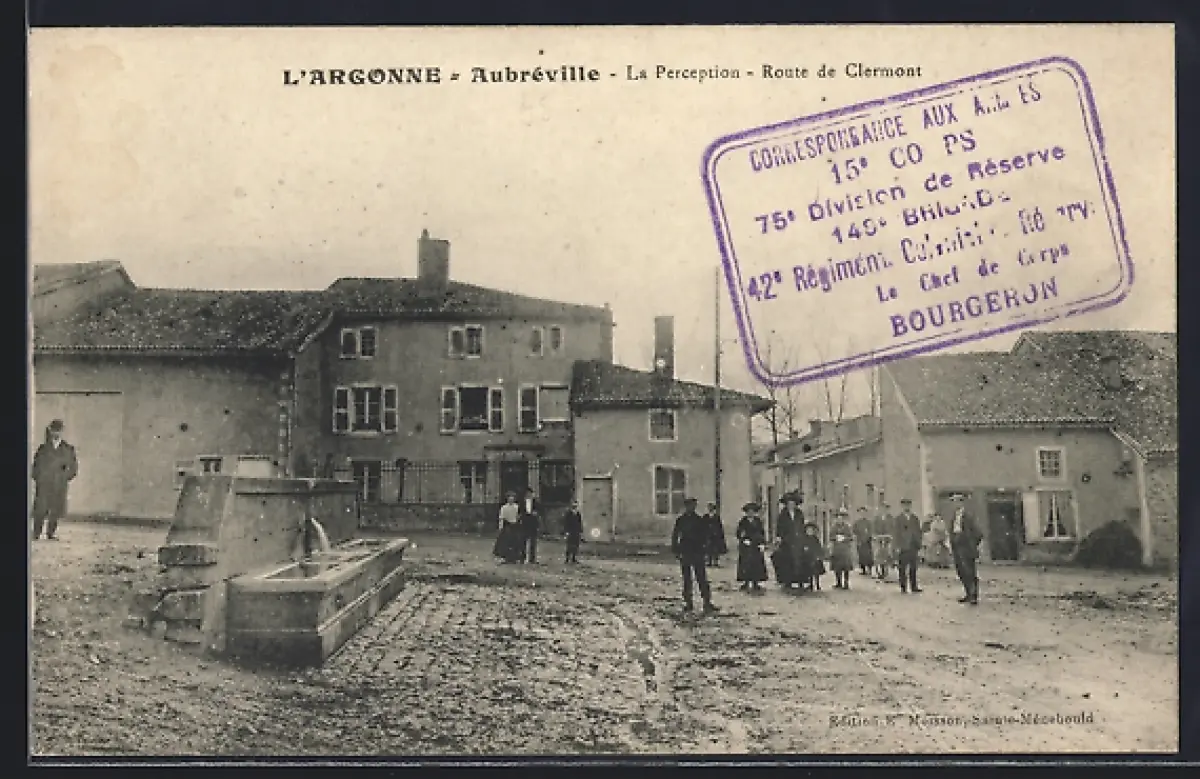 L'ARGONNE - Aubréville - La Perception - Route de Clermont
CORRESPONDANCE AUX
15e
75e Division de Réserve
149e BRIGADE
42e Régiment
Le Chef de Corps
BOURGERON
Edition Sainte-Ménehould